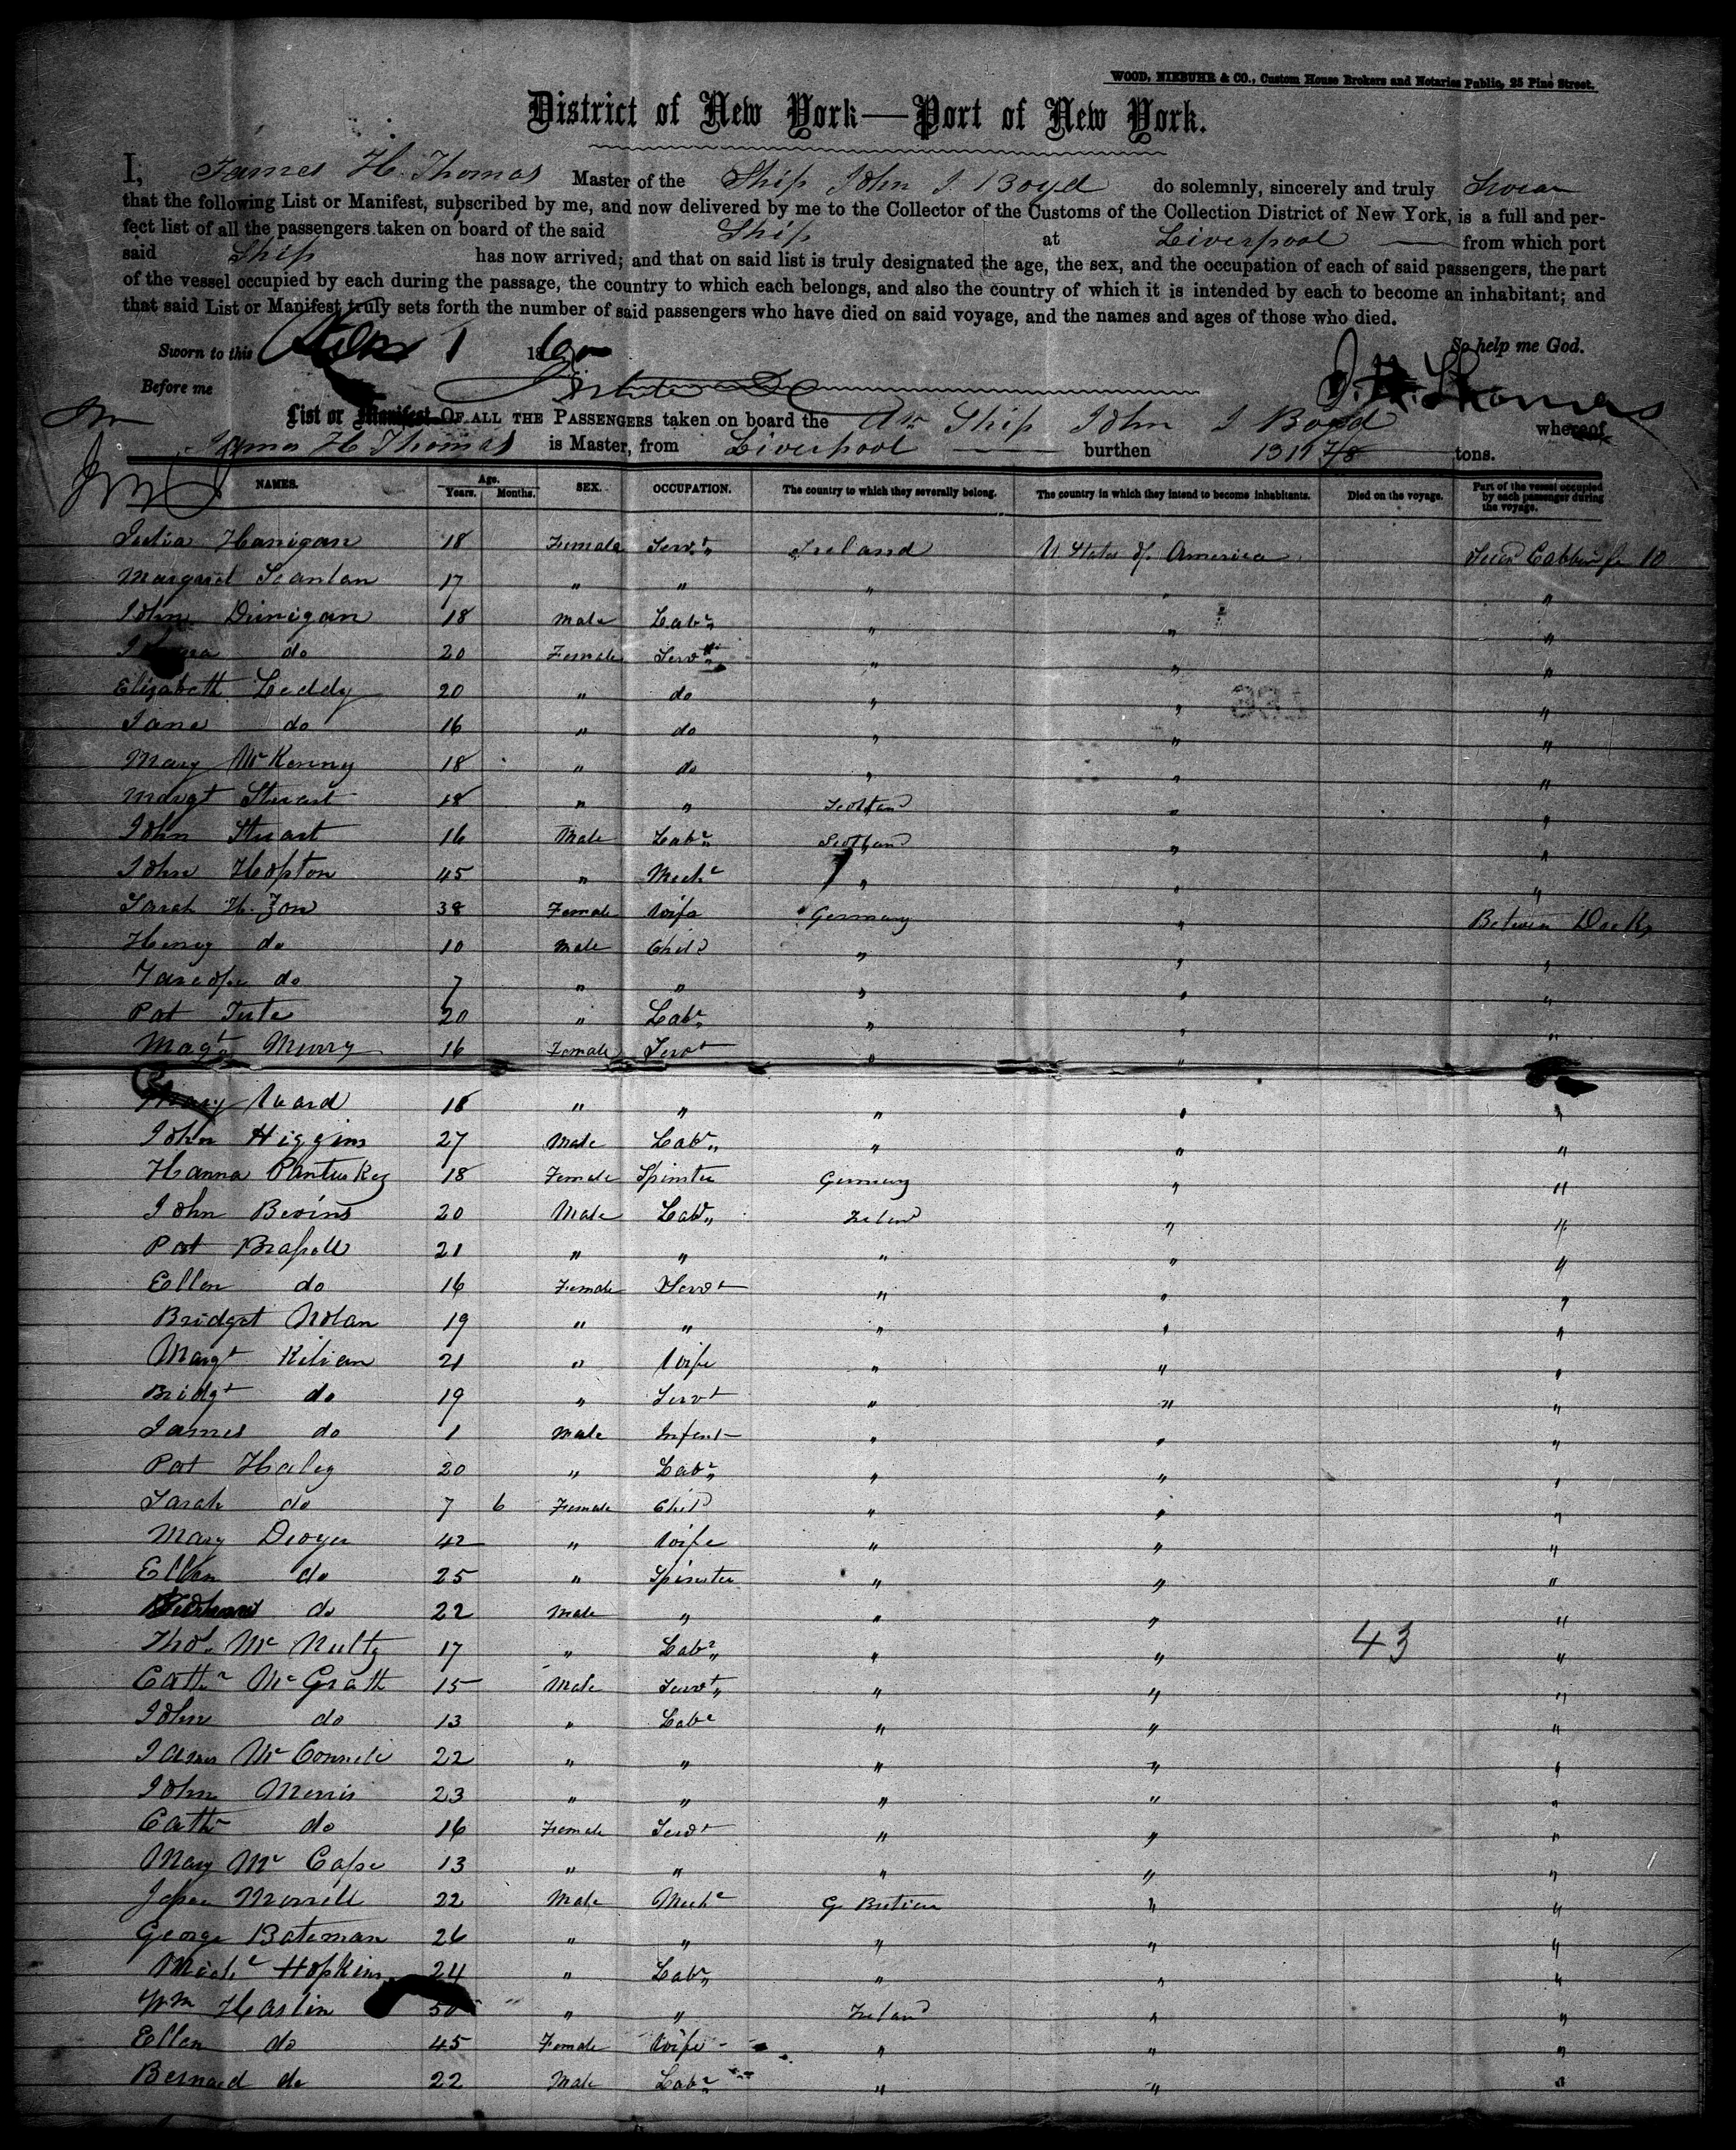 WOOD, NIEBUHR & CO., Custom House Brokers and Notaries Public, 25 Pine Street.
District of New York—Port of New York.
I, James H. Thomas Master of the Ship John J. Boyd do solemnly, sincerely and truly Swear
that the following List or Manifest, subscribed by me, and now delivered by me to the Collector of the Customs of the Collection District of New York, is a full and per-
fect list of all the passengers taken on board of the said Ship at Liverpool — from which port
said Ship has now arrived; and that on said list is truly designated the age, the sex, and the occupation of each of said passengers, the part
of the vessel occupied by each during the passage, the country to which each belongs, and also the country of which it is intended by each to become an inhabitant; and
that said List or Manifest truly sets forth the number of said passengers who have died on said voyage, and the names and ages of those who died.
Sworn to this 1 1860 So help me God.
Before me J. H. Thomas
List or Manifest OF ALL THE PASSENGERS taken on board the Am Ship John J Boyd whereof
James H Thomas is Master, from Liverpool — burthen 1311 7/8 tons.
NAMES. Age. Years. Months. SEX. OCCUPATION. The country to which they severally belong. The country in which they intend to become inhabitants. Died on the voyage. Part of the vessel occupied by each passenger during the voyage.
Julia Hanigan 18 Female Servt Ireland U States of America 10
Margaret Scanlan 17 " " " " "
John Dinigan 18 Male Labr " " "
do 20 Female Servt " " "
Elizabeth Leddy 20 " do " " "
Jane do 16 " do " " "
Mary McKenny 18 " do " " "
Margt Stuart 18 " " Scotland " "
John Stuart 16 Male Labr Scotland " "
John Hopton 45 " Mechc " " "
Sarah H. Zon 38 Female Wife Germany " Between Decks
Henry do 10 Male Child " " "
do 7 " " " " "
Pat 20 " Labr " " "
Magt Murry 16 Female Servt " " "
Mary Ward 18 " " " " "
John Higgins 27 Male Labr " " "
Hanna 18 Female Spinster Germany " "
John Bevins 20 Male Labr Ireland " "
Pat 21 " " " " "
Ellen do 16 Female Servt " " "
Bridget Nolan 19 " " " " "
Margt Kilian 21 " Wife " " "
Bridgt do 19 " Servt " " "
James do 1 Male Infant " " "
Pat Haley 20 " Labr " " "
Sarah do 7 6 Female Child " " "
Mary Dwyer 42 " Wife " " "
Ellen do 25 " Spinster " " "
do 22 Male " " " "
Thos McNulty 17 " Labr " " 43 "
Cathn McGrath 15 Male Servt " " "
John do 13 " Labr " " "
James McConnell 22 " " " " "
John Merris 23 " " " " "
Cathn do 16 Female Servt " " "
Mary McCape 13 " " " " "
Morrell 22 Male Mechc G Britian " "
George Bateman 26 " " " " "
Michl Hopkins 24 " Labr " " "
Wm Haslin 50 " " Ireland " "
Ellen do 45 Female Wife " " "
Bernard do 22 Male Labr " " "